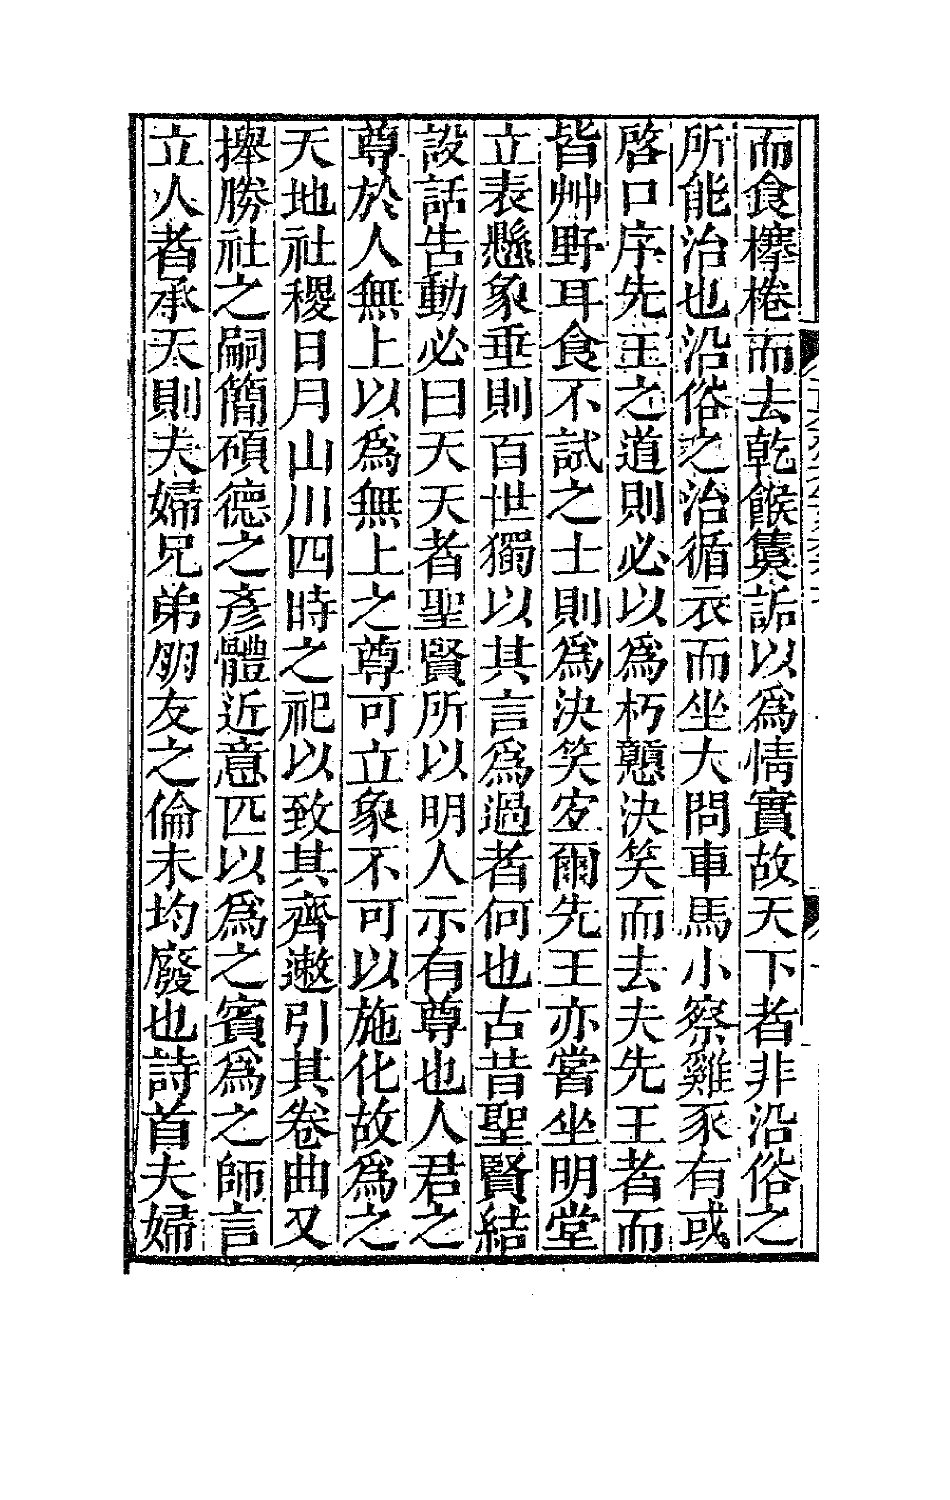 而食檸棬而去乾餱䉤詬以爲情實故天下者非沿俗之
所能治也沿俗之治循衣而坐大問車馬小察雞豕有或
啓口序先王之道則必以爲朽戇決笑而去夫先王者而
皆艸野耳食不試之士則爲決笑宐爾先王亦嘗坐明堂
立表懸象垂則百世獨以其言爲過者何也古昔聖賢結
設話告動必曰天天者聖賢所以明人示有尊也人君之
尊於人無上以爲無上之尊可立象不可以施化故爲之
天地社稷日月山川四時之祀以致其齊遬引其卷曲又
擧勝社之嗣簡碩德之彥體近意匹以爲之賓爲之師言
立人者承天則夫婦兄弟朋友之倫未均廢也詩首夫婦